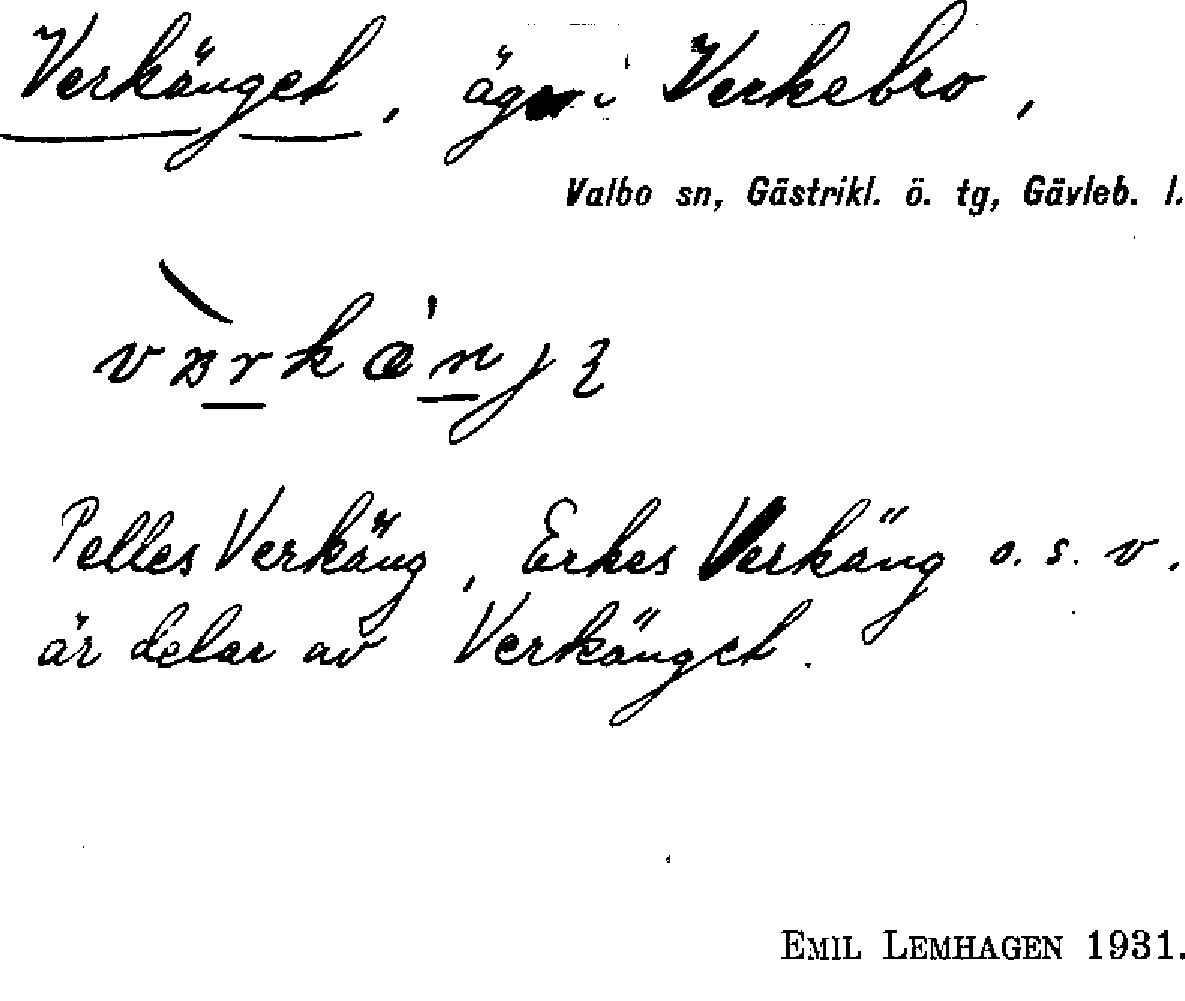 Verkänget, äga i Verkebro,
Valbo sn, Gästrikl. ö. tg, Gävleb. l.
Pelles Verkäng, Erkes Verkäng o. s. v.
är delar av Verkänget.
EMIL LEMHAGEN 1931.